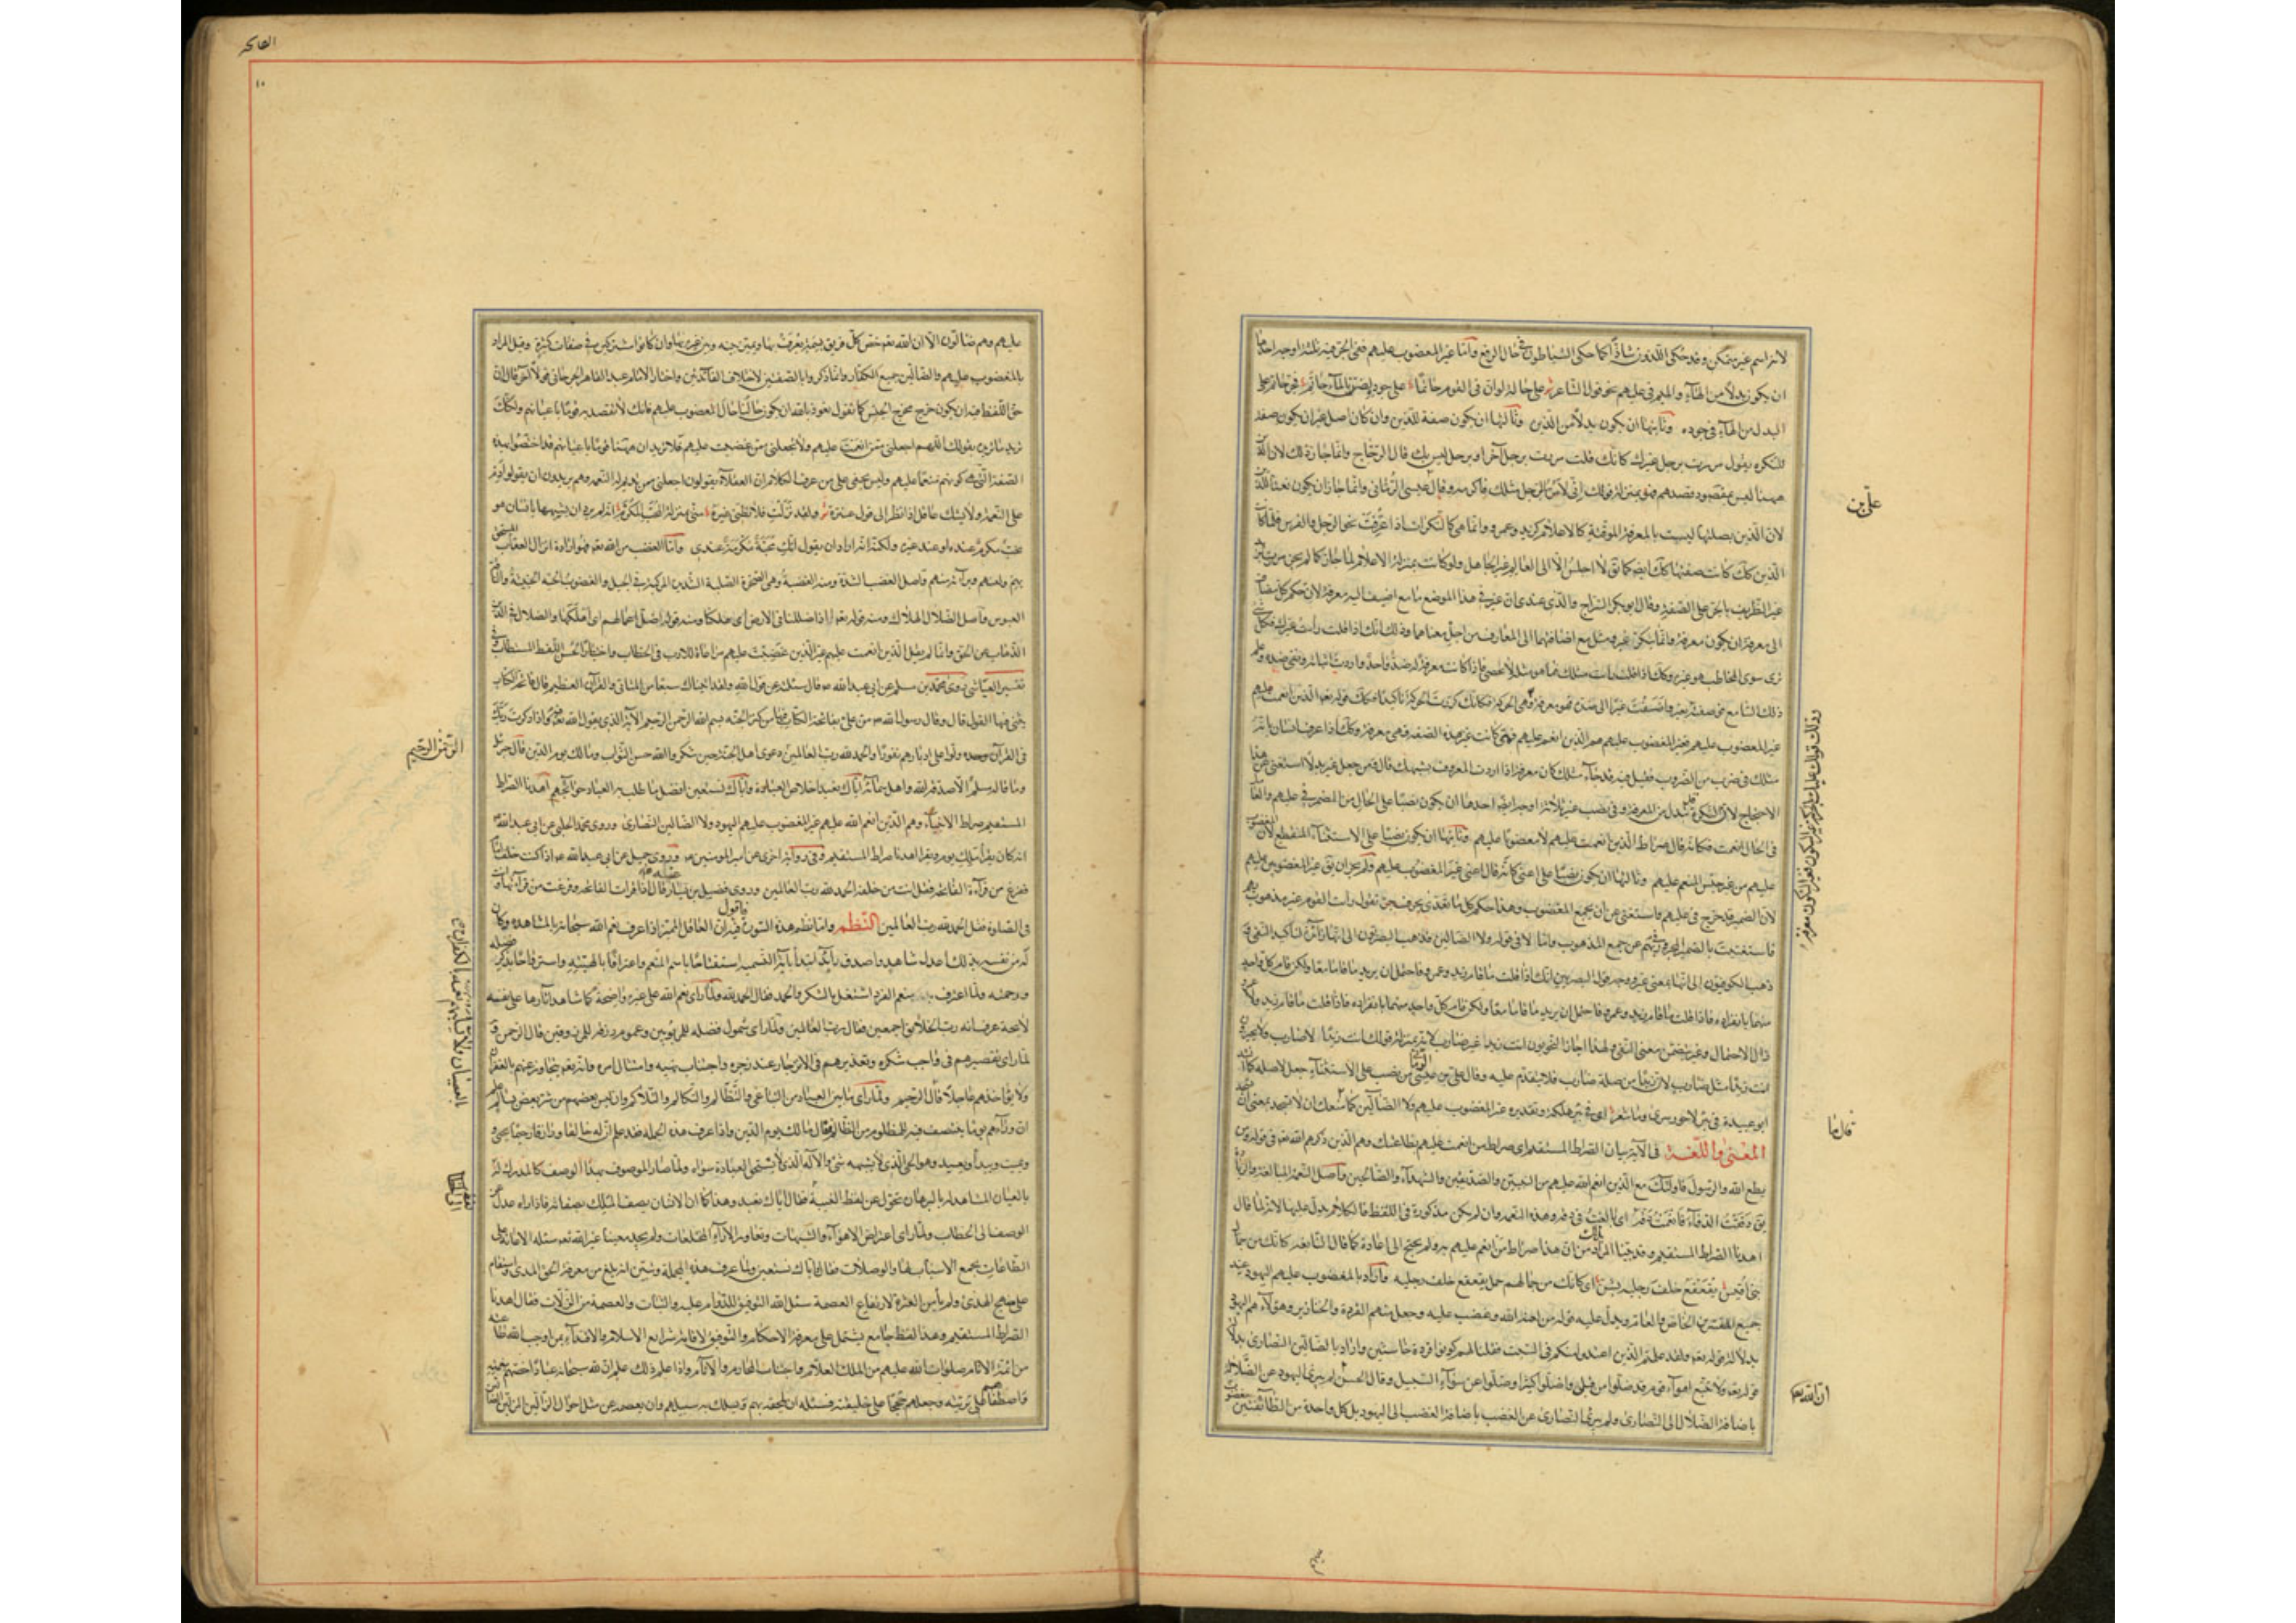 لانه اسم غير متمكن وقد حكى اللذون شاذا كما حكى الشياطون في حال الرفع واما غير المغضوب عليهم ففي الجر فيه ثلثة اوجه احدها
ان يكون بدلا من الهاء والميم في عليهم نحو قول الشاعر على حالة لو ان في القوم حاتما على جوده لضن بالماء حاتم فجر حاتم على
البدل من الهاء في جوده وثانيها ان يكون بدلا من الذين وثالثها ان يكون صفة للذين وان كان اصل غير ان يكون صفة
للنكرة يقول مررت برجل غيرك كانك قلت مررت برجل آخر او برجل ليس بك قال الزجاج وانما جاز ذلك لان الذين
ههنا ليس بمقصود قصدهم فهو بمنزلة قولك اني لامر بالرجل مثلك فاكرمه وقال علي بن عيسى الرماني وانما جاز ان يكون نعتا للذين
لان الذين بصلتها ليست بالمعرفة الموقتة كالاعلام كزيد وعمرو وانما هي كالنكرات اذا عرفت نحو الرجل والفرس فلما كانت
الذين كذلك كانت صفتها كذلك ايضا كما يق لا اجلس الا الى العالم غير الجاهل ولو كانت بمنزلة الاعلام لما جاز كما لم يجز مررت بزيد
غير الظريف بالجر على الصفة وقال ابو بكر السراج والذي عندي ان غير في هذا الموضع مع ما اضيف اليه معرفة لان حكم كل مضاف
الى معرفة ان يكون معرفة وانما تنكرت غير ومثل مع اضافتهما الى المعارف من اجل معناهما وذلك انك اذا قلت رأيت غيرك فكل شيء
ترى سوى المخاطب هو غيره وكذلك اذا قلت رأيت مثلك فما هو مثله لا يحصى فاذا كان شيء معرفة له ضد واحد واردت اثباته ونفي ضده وعلم
ذلك السامع فوصفته بغير واضفت غير الى ضده فهو معرفة
غير المغضوب عليهم فغير المغضوب عليهم هم الذين انعم عليهم فمتى كانت غير بهذه الصفة فهي معرفة وكذلك اذا عرف انسان بانه
مثلك في ضرب من الضروب فقيل فيه قد جاء مثلك كان معرفة اذا اردت المعروف بشبهك قال ومن جعل غير بدلا استغنى عن هذا
الاحتجاج لان النكرة قد تبدل من المعرفة وفي نصب غير ثلاثة اوجه ايضا احدها ان يكون نصبا على الحال من المضمر في عليهم والعامل
في الحال انعمت فكانه قال صراط الذين انعمت عليهم لا مغضوبا عليهم وثانيها ان يكون نصبا على الاستثناء المنقطع لان المغضوب
عليهم من غير جنس المنعم عليهم وثالثها ان يكون نصبا على اعني كانه قال اعني غير المغضوب عليهم ولم يجز ان يق غير المغضوبين عليهم
لان الضمير قد خرج في عليهم فاستغنى عن ان يجمع المغضوب وهذا حكم كل ما تعدى بحرف جر تقول رأيت القوم غير مذهوب بهم
فاستغنيت بالضمير المجرور في بهم عن جمع المذهوب واما لا في قوله ولا الضالين فذهب البصريون الى انها زائدة لتأكيد النفي و
ذهب الكوفيون الى انها بمعنى غير ووجه قول البصريين انك اذا قلت ما قام زيد وعمرو فاحتمل ان يريد ما قاما معا ولكن قام كل واحد
منهما بانفراده فاذا قلت ما قام زيد وعمرو فاحتمل ان يريد ما قاما معا ولكن قام كل واحد منهما بانفراده فاذا قلت ما قام زيد ولا عمرو
زال الاحتمال وغير متضمن معنى النفي ولهذا اجاز النحويون انت زيدا غير ضارب لانه بمنزلة قولك انت زيدا لا ضارب ولا يجيزون
انت زيدا مثل ضارب لان زيدا من صلة ضارب فلا يتقدم عليه وقال علي بن عيسى الرماني من نصب على الاستثناء جعل لا صلة كما انشد
ابو عبيدة في بئر لا حور سرى وما شعر اي في بئر هلكة وتقديره غير المغضوب عليهم والضالين كما منعك ان لا تسجد بمعنى ان تسجد
المعنى واللغة في الآية بيان الصراط المستقيم اي صراط من انعمت عليهم بطاعتك وهم الذين ذكرهم الله تع في قوله ومن
يطع الله والرسول فاولئك مع الذين انعم الله عليهم من النبيين والصديقين والشهداء والصالحين واصل النعمة المبالغة والزيادة
يق دققت الدواء فانعمت دقه اي بالغت في دقه وهذه النعمة وان لم يكن مذكورة في اللفظ فالكلام يدل عليها لانه لما قال
اهدنا الصراط المستقيم وقد بينا المراد بذلك بين ان هذا صراط من انعم عليهم به ولم يحتج الى اعادة كما قال النابغة كانك من جمال
بني اقيش يقعقع خلف رجليه بشن اي كانك من جمالهم جمل يقعقع خلف رجليه واراد بالمغضوب عليهم اليهود عند
جميع المفسرين الخاص والعام ويدل عليه قوله من لعنه الله وغضب عليه وجعل منهم القردة والخنازير وهؤلاء هم اليهود
بدلالة قوله تع ولقد علمتم الذين اعتدوا منكم في السبت فقلنا لهم كونوا قردة خاسئين واراد بالضالين النصارى بدلالة
قوله تع ولا تتبعوا اهواء قوم قد ضلوا من قبل واضلوا كثيرا وضلوا عن سواء السبيل وقال الحسن لم يبرئ اليهود من الضلالة
باضافة الضلال الى النصارى ولم يبرئ النصارى عن الغضب باضافة الغضب الى اليهود بل كل واحدة من الطائفتين مغضوب
علي بن
قال ما
ان الله سبحانه
الفاتحة
١٠
عليهم وهم ضالون الا ان الله تع يخص كل فريق بسمة يعرف بها ويميز بينه وبين غيره بها وان كانوا مشتركين في صفات كثيرة وقيل المراد
بالمغضوب عليهم والضالين جميع الكفار وانما ذكروا بالصفتين لاختلاف الفائدتين واختار الامام عبد القاهر الجرجاني قولا آخر قال ان
حق اللفظ فيه ان يكون خرج مخرج الجنس كما تقول نعوذ بالله ان يكون حالنا حال المغضوب عليهم فانك لا تقصد به قوما باعيانهم ولكنك
تريد ما تريده بقولك اللهم اجعلني ممن انعمت عليهم ولا تجعلني ممن غضبت عليهم فلا تريد ان ههنا قوما باعيانهم قد اختصوا بهذه
الصفة التي هي كونهم منعما عليهم وليس يخفى على من عرف الكلام ان العقلاء يقولون اجعلني ممن تديم له النعمة وهم يريدون ان يقولوا ادم
على النعمة ولا يشك عاقل اذا نظر الى قول عنترة ولقد نزلت فلا تظني غيره مني بمنزلة المحب المكرم انه لم يرد ان يشبهها بانسان هو
محب مكرم عنده او عند غيره ولكنه اراد ان يقول انك محبة مكرمة عندي واما الغضب من الله تع فهو ارادة انزال العقاب المستحق
بهم ولعنهم وبراءته منهم واصل الغضب الشدة ومنه الغضبة وهي الصخرة الصلبة الشديدة المركبة في الجبل والغضوب الحية الخبيثة والناقة
العبوس واصل الضلال الهلاك ومنه قوله تع اذا ضللنا في الارض اي هلكنا ومنه قوله اضل اعمالهم اي اهلكها والضلال في الدين
الذهاب عن الحق وانما لم يقل الذين انعمت عليهم غير الذين غضبت عليهم مراعاة للادب في الخطاب واختيارا لحسن اللفظ المستطاب وفي
تفسير العياشي روى محمد بن مسلم عن ابي عبد الله ع قال سئلته عن قول الله ولقد آتيناك سبعا من المثاني والقرآن العظيم قال فاتحة الكتاب
يثنى فيها القول قال وقال رسول الله ص من علي بفاتحة الكتاب فيها من كنز الجنة بسم الله الرحمن الرحيم الآية الذي يقول الله تع فيها واذا ذكرت ربك
في القرآن وحده ولوا على ادبارهم نفورا والحمد لله رب العالمين دعوى اهل الجنة حين شكروا الله حسن الثواب ومالك يوم الدين قال جبرئيل
ما قالها مسلم الا صدقه الله واهل سمائه اياك نعبد اخلاص العبادة واياك نستعين افضل ما طلب به العباد حوائجهم اهدنا الصراط
المستقيم صراط الانبياء وهم الذين انعم الله عليهم غير المغضوب عليهم اليهود ولا الضالين النصارى وروى محمد الحلبي عن ابي عبد الله ع
انه كان يقرأ ملك يوم الدين ويقرأ اهدنا صراط المستقيم وفي رواية اخرى عن امير المؤمنين ع وروى جميل عن ابي عبد الله ع اذا كنت خلف امام
ففرغ من قراءة الفاتحة فقل انت من خلفه الحمد لله رب العالمين وروى فضيل بن يسار عنه ع قال اذا قرأت الفاتحة وفرغت من قراءتها وانت
في الصلوة فقل الحمد لله رب العالمين النظم واما نظم هذه السورة فاقول فيه ان العاقل المميز اذا عرف نعم الله سبحانه بالمشاهدة وكان
له من نفسه بذلك اعدل شاهد واصدق رائد ابتدأ بآية التسمية استفتاحا باسم المنعم واعترافا بالهيته واسترواحا بذكر فضله
ورحمته ولما اعترف بالمنعم الفرد اشتغل بالشكر والحمد فقال الحمد لله ولما رأى نعم الله على غيره واضحة كما شاهد آثارها على نفسه
لايحة عرف انه رب الخلائق اجمعين فقال رب العالمين ولما رأى شمول فضله للمربوبين وعموم رزقه للمرزوقين قال الرحمن و
لما رأى تقصيرهم في واجب شكره وتعذيرهم في الانزجار عند زجره واجتناب نهيه وامتثال امره وانه تع يتجاوز عنهم بالغفران
ولا يؤاخذهم عاجلا قال الرحيم ولما رأى ما بين العباد من التباغي والتظالم والتكالم والتلاكم وان ليس بعضهم من شر بعض بسالم علم
ان وراءهم يوما ينتصف فيه للمظلوم من الظالم فقال مالك يوم الدين واذا عرف هذه الجملة فقد علم ان له خالقا رازقا رحيما يحيي و
يميت ويبدئ ويعيد وهو الحي الذي لا يشبهه شيء والاله الذي لا يستحق العبادة سواه ولما صار الموصوف بهذا الوصف كالمدرك له
بالعيان المشاهد له بالبرهان تحول عن لفظ الغيبة فقال اياك نعبد وهذا كما ان الانسان يصف الملك بصفاته فاذا رآه عدل عن
الوصف الى الخطاب ولما رأى اعتراض الاهواء والشبهات وتعاور الآراء المختلفات ولم يجد معينا غير الله تع سئله الاعانة على
الطاعات بجمع الاسباب لها والوصلات فقال واياك نستعين ولما عرف هذه الجملة وتبين انه بلغ من معرفة الحق المدى واستقام
على منهج الهدى ولم يأمن العثرة لارتفاع العصمة سئل الله التوفيق للدوام عليه والثبات والعصمة من الزلات فقال اهدنا
الصراط المستقيم وهذا لفظ جامع يشتمل على معرفة الاحكام والتوفيق لاقامة شرايع الاسلام والاقتداء بمن اوجب الله طاعته
من ائمة الانام صلوات الله عليهم من الملك العلام واجتناب المحارم والآثام واذا علم ذلك علم ان لله سبحانه عبادا اختصهم بنعمته
واصطفاهم على بريته وجعلهم حججا على خليقته فسئله ان يلحقه بهم ويسلك به سبيلهم وان يعصمه عن مثل احوال الزالين المزلين
الرحمن الرحيم